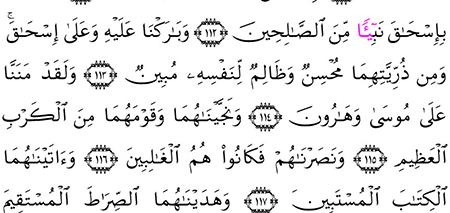 بِإِسْحَٰقَ نَبِيٓـًٔا مِّنَ ٱلصَّٰلِحِينَ ﴿١١٢﴾ وَبَٰرَكْنَا عَلَيْهِ وَعَلَىٰٓ إِسْحَٰقَۚ
وَمِن ذُرِّيَّتِهِمَا مُحْسِنٌ وَظَالِمٌ لِّنَفْسِهِۦ مُبِينٌ ﴿١١٣﴾ وَلَقَدْ مَنَنَّا
عَلَىٰ مُوسَىٰ وَهَٰرُونَ ﴿١١٤﴾ وَنَجَّيْنَٰهُمَا وَقَوْمَهُمَا مِنَ ٱلْكَرْبِ
ٱلْعَظِيمِ ﴿١١٥﴾ وَنَصَرْنَٰهُمْ فَكَانُوا۟ هُمُ ٱلْغَٰلِبِينَ ﴿١١٦﴾ وَءَاتَيْنَٰهُمَا
ٱلْكِتَٰبَ ٱلْمُسْتَبِينَ ﴿١١٧﴾ وَهَدَيْنَٰهُمَا ٱلصِّرَٰطَ ٱلْمُسْتَقِيمَ